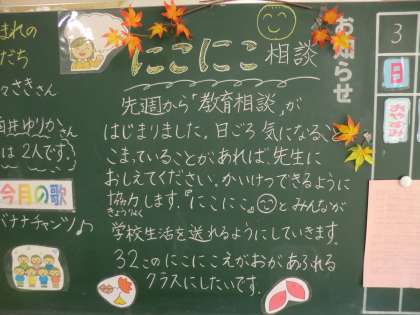 にこにこ相談
先週から「教育相談」が
はじまりました。日ごろ気になること
こまっていることがあれば、先生に
おしえてください。かいけつできるように
協力します。『にこにこ』とみんなが
きょうりょく
学校生活を送れるようにしていきます。
32このにこにこえがおがあふれる
クラスにしたいです。
お知らせ
3
日
おやすみ
まれの
だち
々さきさん
井ゆりかさん
は2人です。
今月の歌
バナナチャンツ♪